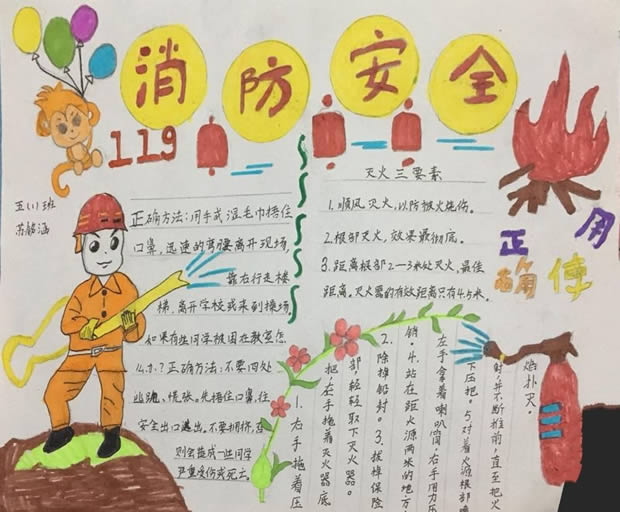 消防安全
119
五(1)班
苏韶涵
正确方法:用手或湿毛巾捂住
口鼻,迅速的弯腰离开现场,
靠右行走楼
梯,离开学校或来到操场。
如果有些同学被困在教室怎
么办?正确方法:不要四处
乱跑、慌张。先捂住口鼻,往
安全出口逃出,不要拥挤,否
则会造成一些同学
严重受伤或死亡。
灭火三要素
1.顺风灭火,以防被火烧伤。
2.根部灭火,效果最彻底。
3.距离根部2—3米处灭火,最佳
距离,灭火器的有效距离只有4.5米。
正确使用
1.右手拖着压
把,左手拖着灭火器底
部轻轻取下灭火器。
2.除掉铅封。3.拔掉保险
销。4.站在距火源两米的地方
左手拿着喇叭筒,右手用力压
下压把。5对着火焰根部喷
射,并不断推前,直至把火
焰扑灭。